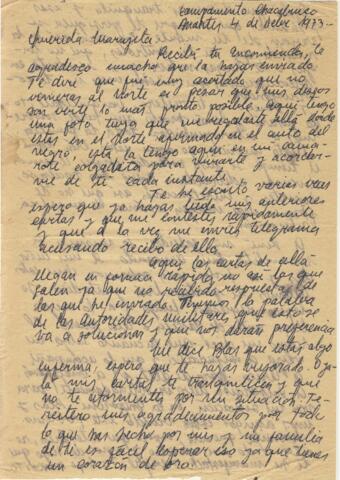 Campamento Chacabuco
Martes 4 de Dcbre 1973.-
Querida Marujita:
Recibí tu encomienda, te
agradezco mucho que la hayas enviado.
Te diré que fué muy acertado que no
vinieras al norte es pesar que mis deseos
son verte lo más pronto posible. Aquí tengo
una foto tuya que me regalaste allá donde
estás en el Norte afirmada en el auto del
negro, esta la tengo aquí en mi cama-
rote colgadita para mirarte y acordar-
me de ti cada instante.
Te he escrito varias veces
espero que ya hayas mis anteriores
cartas y que me contestes rápidamente
y que a la vez me envíes telegrama
acusando recibo de ello.
Aquí las cartas de allá
llegan en forma rápida no así las que
salen ya que no recibido respuestas de
las que he enviado. Tenemos la palabra
de las autoridades militares que esto se
va a solucionar y que nos darán preferencia
Me dice Blas que estás algo
enferma, espero que te hayas mejorado. Oja-
lá mis cartas te tranquilicen y que
no te atormentes por mi situación. Te
reitero mis agradecimientos por todo
lo que has hecho por mi y mi familia
de ti es fácil esperar eso ya que tienes
un corazón de oro.